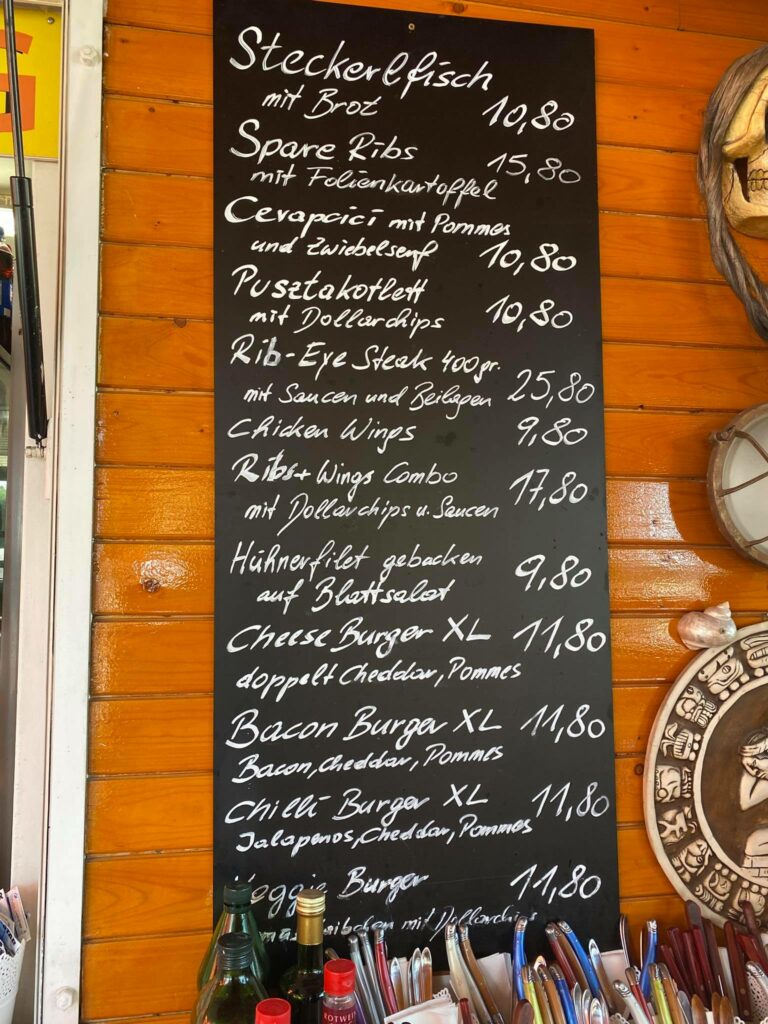 Steckerlfisch
mit Brot 10,80
Spare Ribs 15,80
mit Folienkartoffel
Cevapcici mit Pommes
und Zwiebelsenf 10,80
Pusztakotlett
mit Dollarchips 10,80
Rib-Eye Steak 400gr.
mit Saucen und Beilagen 25,80
Chicken Wings 9,80
Ribs + Wings Combo 17,80
mit Dollarchips u. Saucen
Hühnerfilet gebacken 9,80
auf Blattsalat
Cheese Burger XL 11,80
doppelt Cheddar, Pommes
Bacon Burger XL 11,80
Bacon, Cheddar, Pommes
Chilli Burger XL 11,80
Jalapenos, Cheddar, Pommes
Veggie Burger 11,80
mit Dollarchips
ROTWEIN